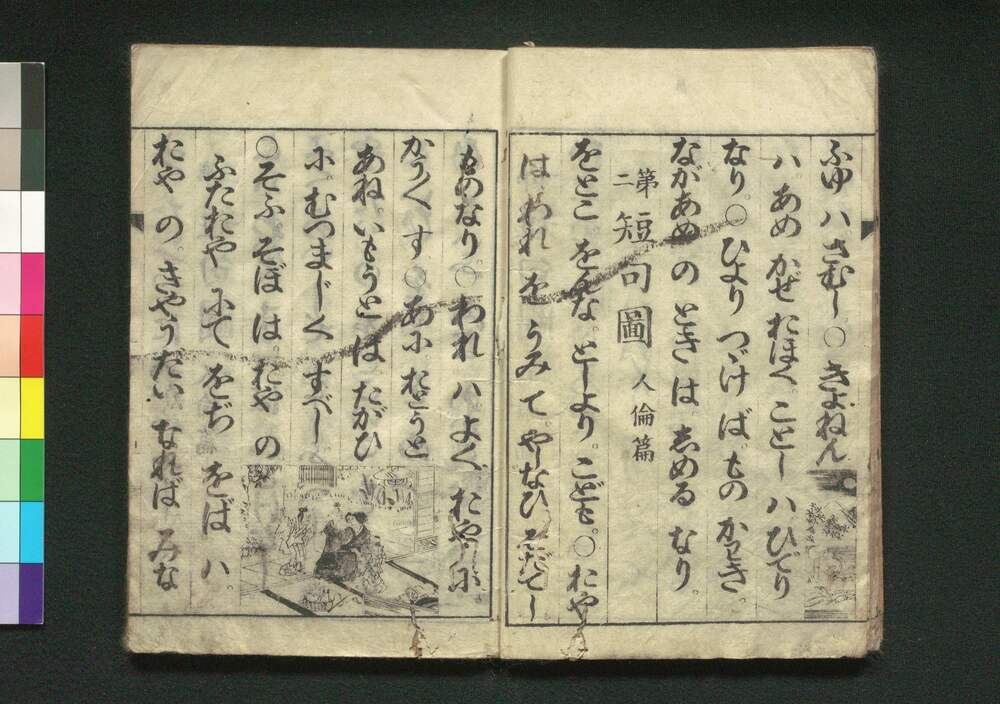 ふゆ ハ さむし ○ きよねん
ハ。あめ かぜ おほく。ことし ハ ひでり
なり。○ ひより つゞけば。もの かわき。
ながあめ の ときは しめる なり。
第二 短句圖 人倫篇
をとこ。をんな。としより。こども。○ おや
は われ を うみ て。やしなひ そだてし
ものなり。○ われ ハ よく、おや に
かうくす ○ あに。おとうと
あね。いもうと は たがひ
に むつまじく すべし
○ そふ。そぼ は。おや の
ふたおや にて をぢ をば ハ。
おや の。きやうだい なれば みな